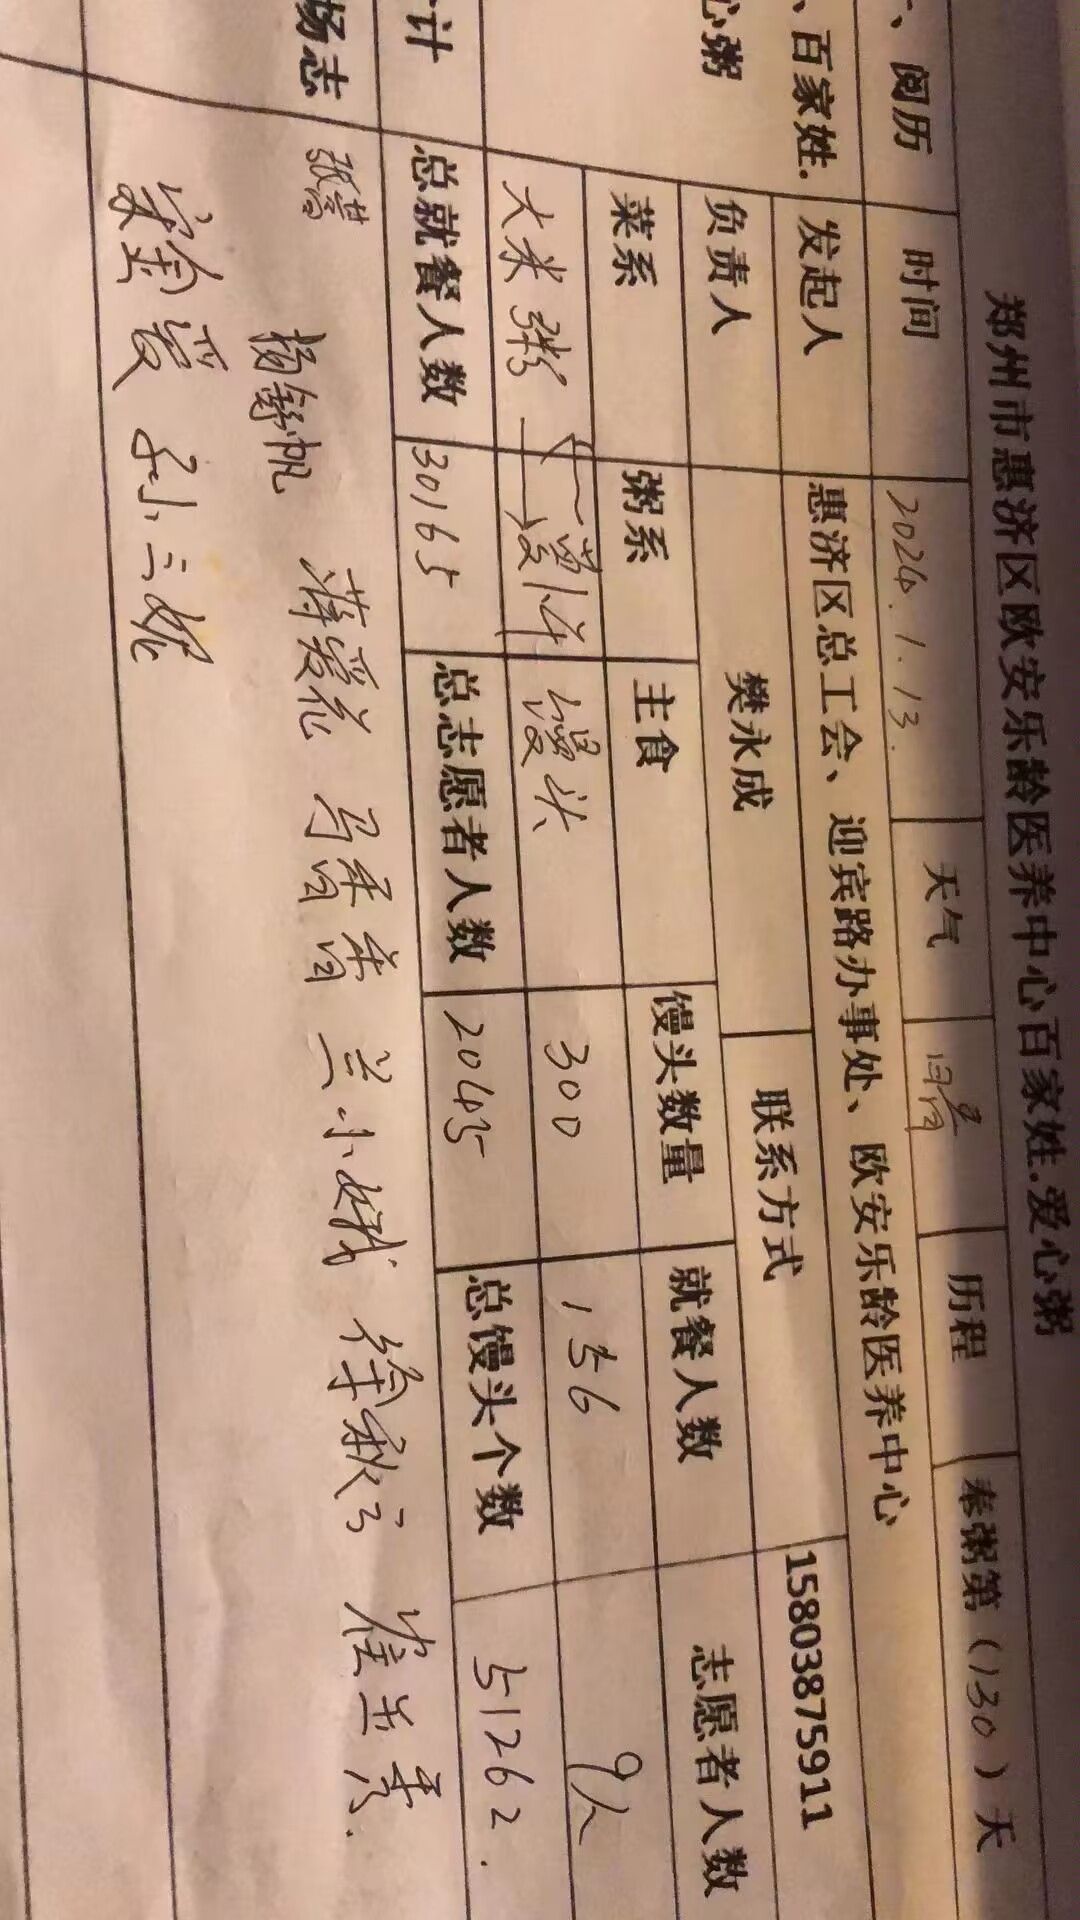 郑州市惠济区欧安乐龄医养中心百家姓.爱心粥
、阅历 时间 2024.1.13. 天气 历程 奉粥第（130）天
、百家姓. 发起人 惠济区总工会、迎宾路办事处、欧安乐龄医养中心
心粥 负责人 樊永成 联系方式 15803875911
菜系 粥系 主食 馒头数量 就餐人数 志愿者人数
大米粥 馒头 300 136 9人
计 总就餐人数 30165 总志愿者人数 2045 总馒头个数 51262.
场志 蒋爱花 马香香 兰小娥 徐秋云 崔兰秀.
宋金爱 孙三妮